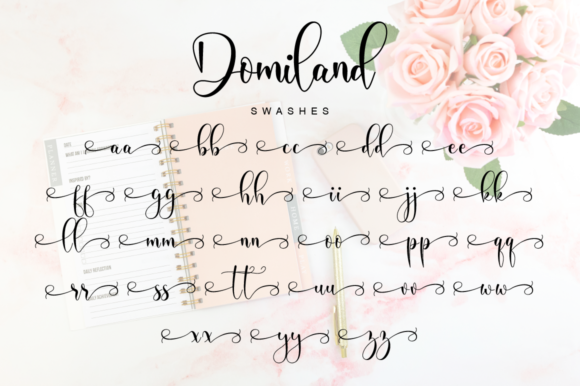 Domiland
SWASHES
aa bb cc dd ee
ff gg hh ii jj kk
ll mm nn oo pp qq
rr ss tt uu vv ww
xx yy zz